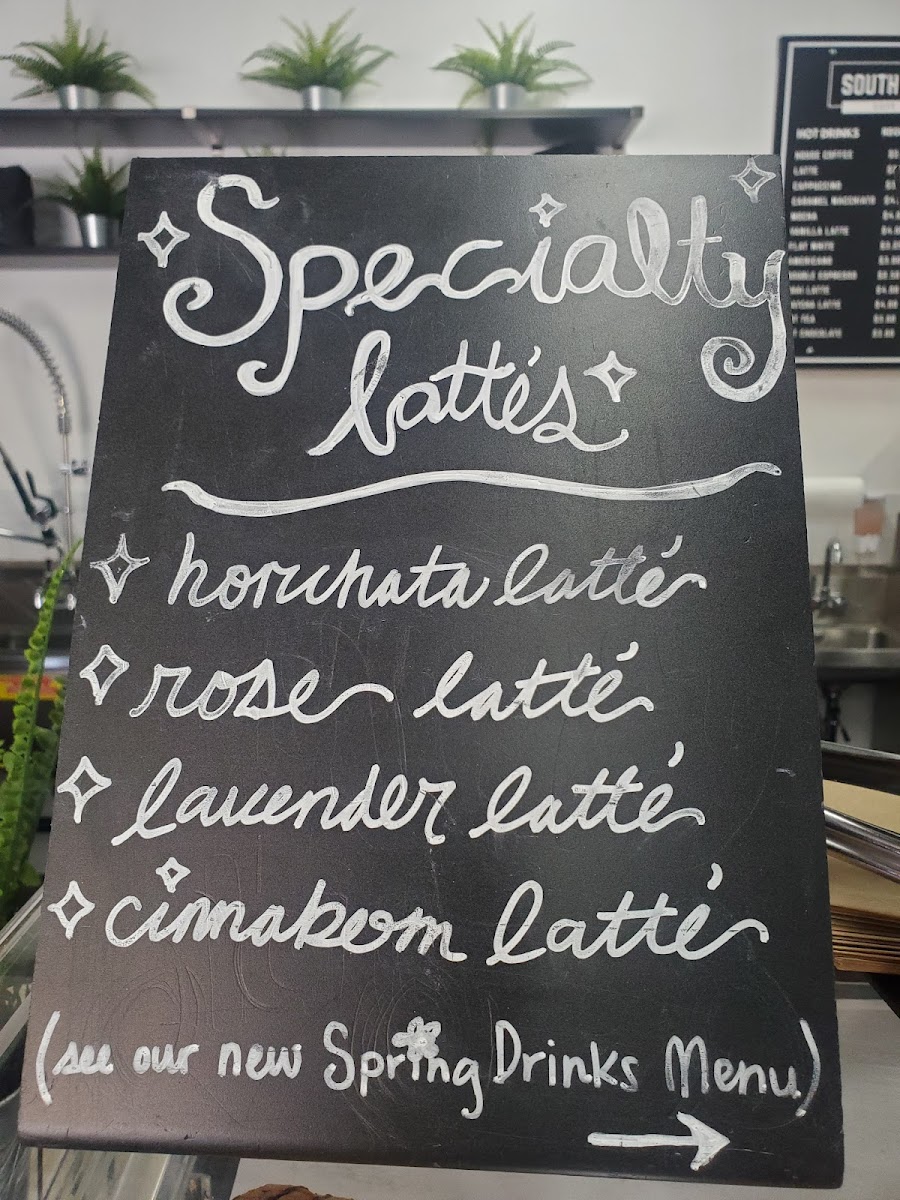 Specialty
lattés
horchata latté
rose latté
lavender latté
cinnabom latté
(see our new Spring Drinks Menu)
SOUTH
HOT DRINKS
HOUSE COFFEE
LATTE
CAPPUCCINO
CARAMEL MACCHIATO
MOCHA
VANILLA LATTE
FLAT WHITE
AMERICANO
DOUBLE ESPRESSO
LATTE
TEA
CHOCOLATE